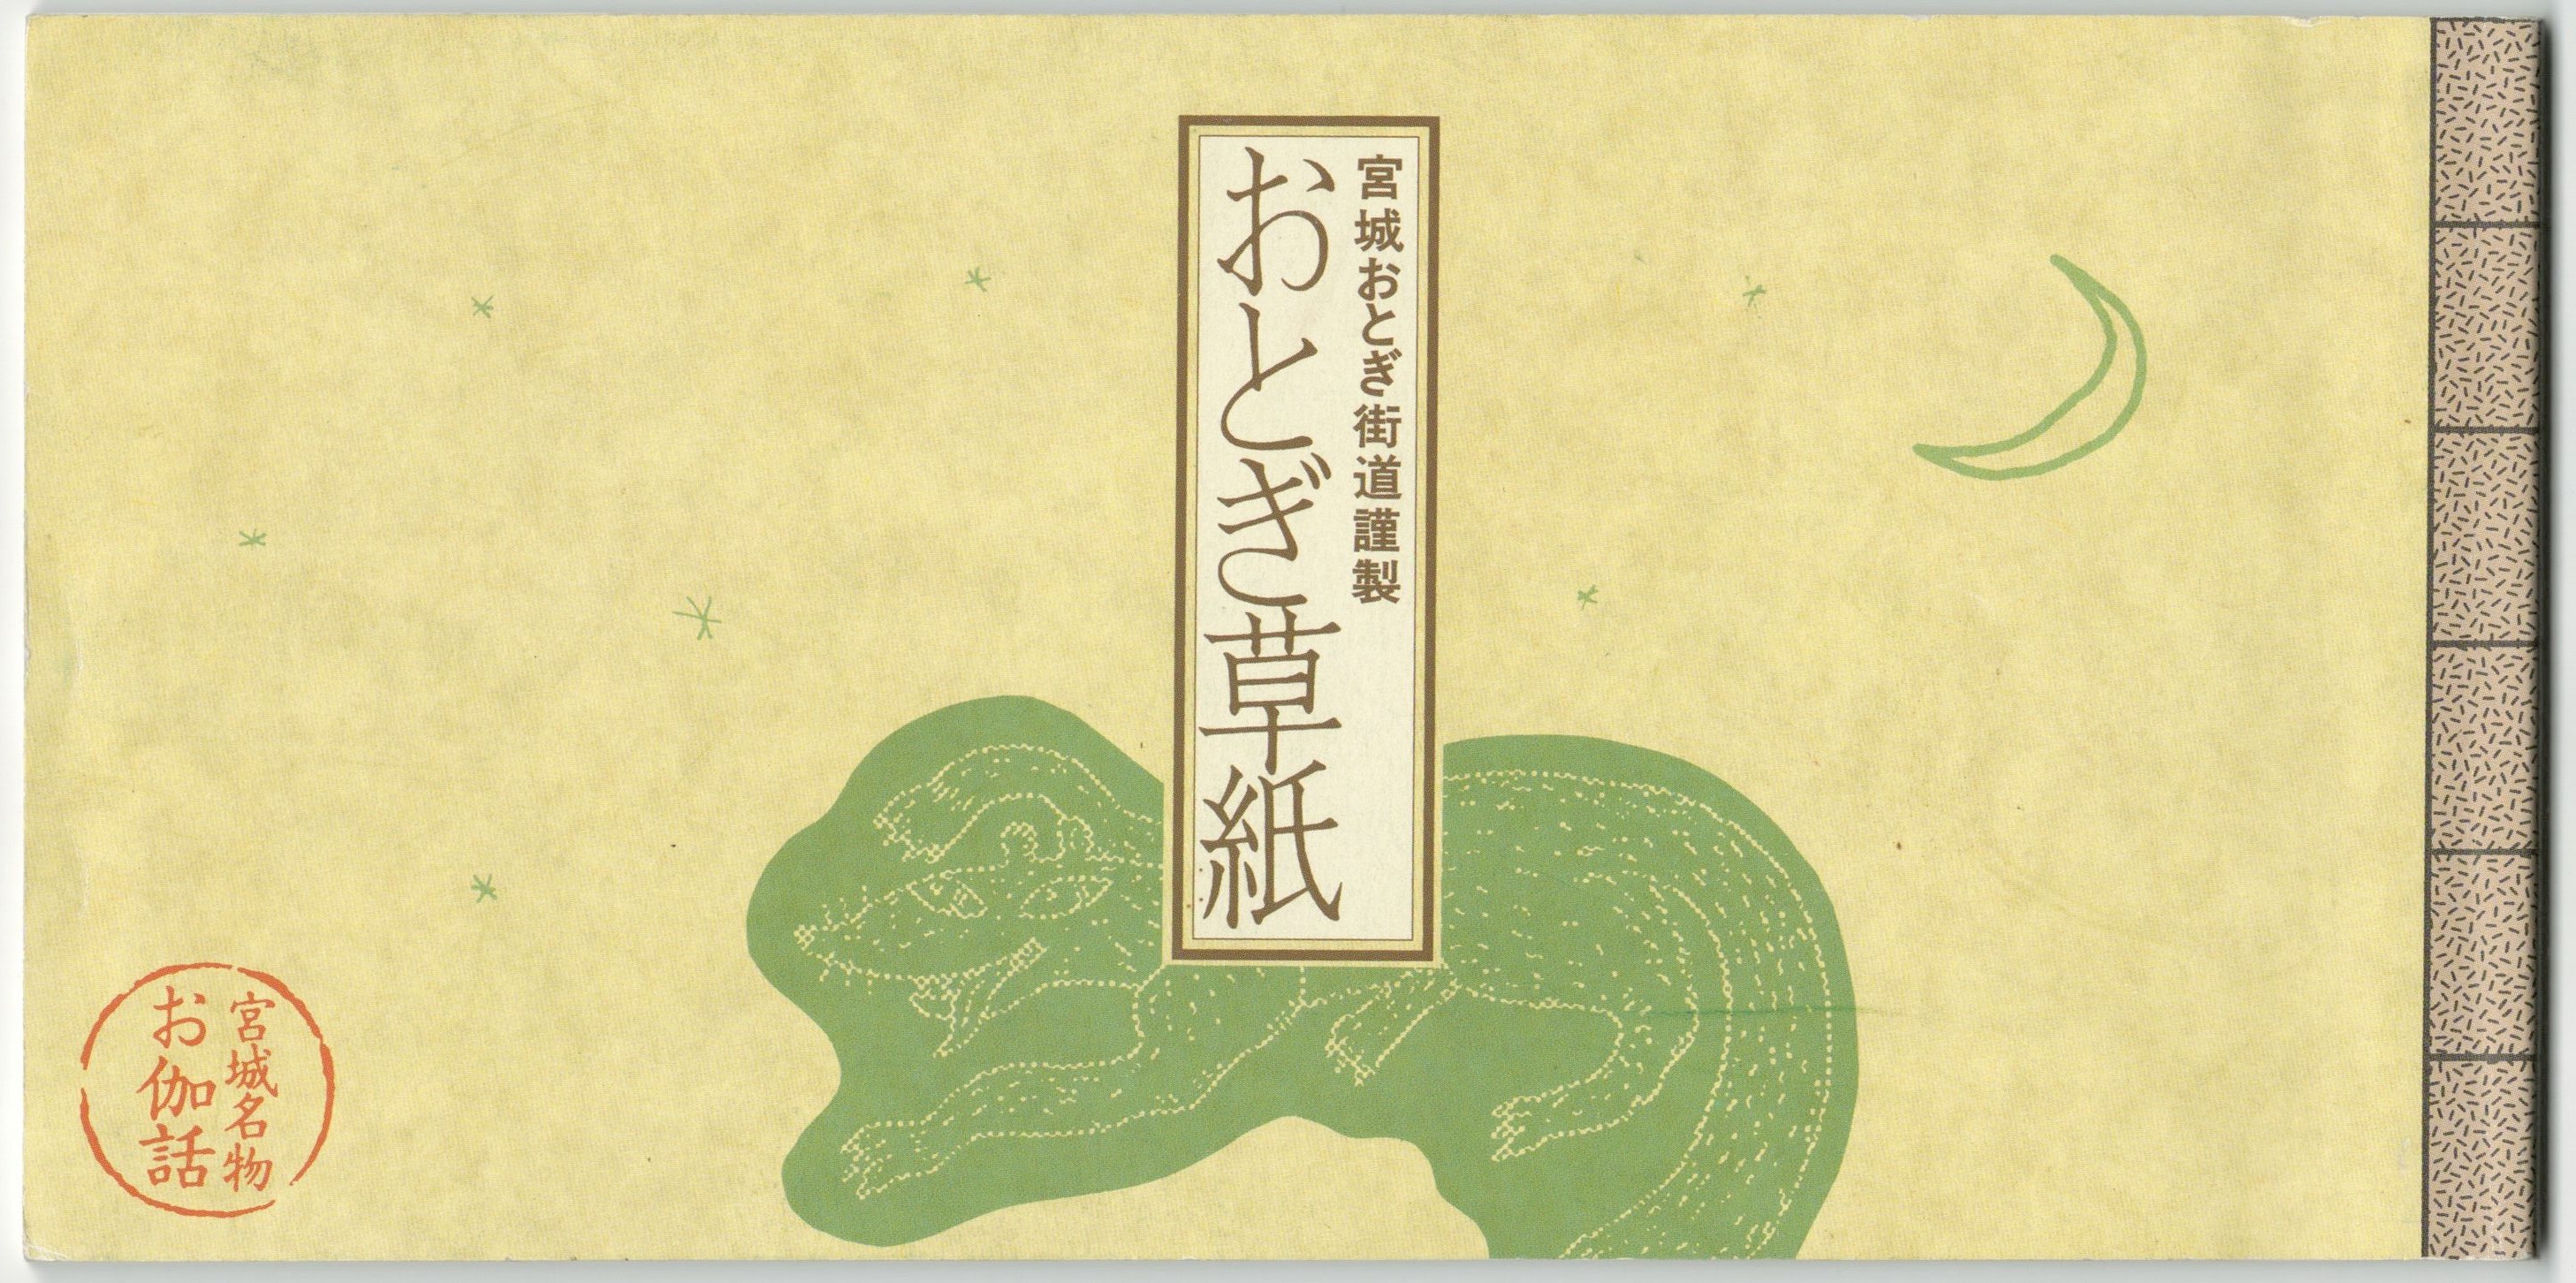 宮城おとぎ街道謹製
おとぎ草紙
宮城名物
お伽話